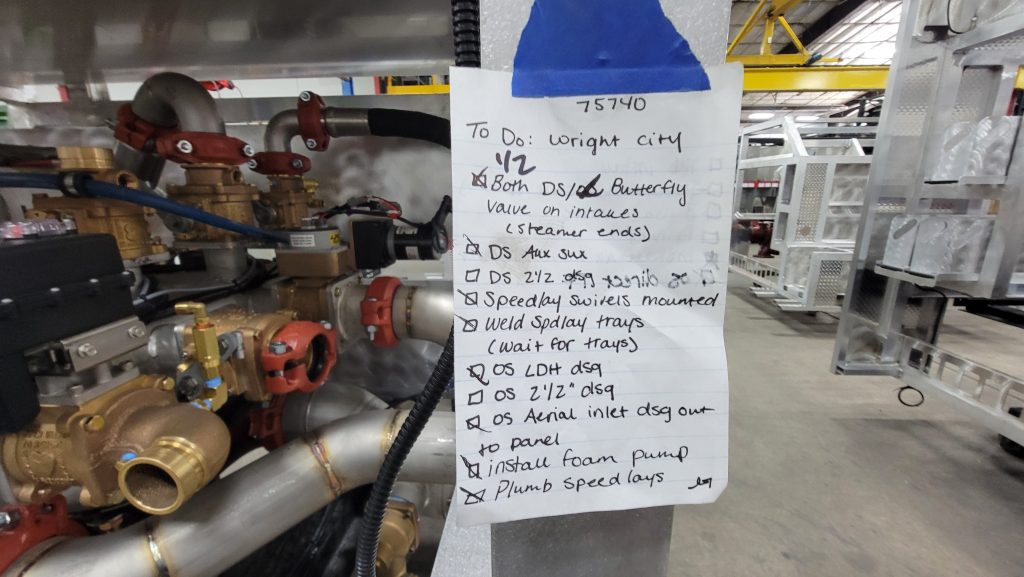 75740
To Do: Wright city
1/2
Both DS/ Butterfly
valve on intakes
(steamer ends)
DS Aux sux
DS 2 1/2 dsg
Speedlay swivels mounted
Weld Spdlay trays
(wait for trays)
OS LDH dsg
OS 2 1/2" dsg
OS Aerial inlet dsg out
to panel
install foam pump
Plumb speedlays